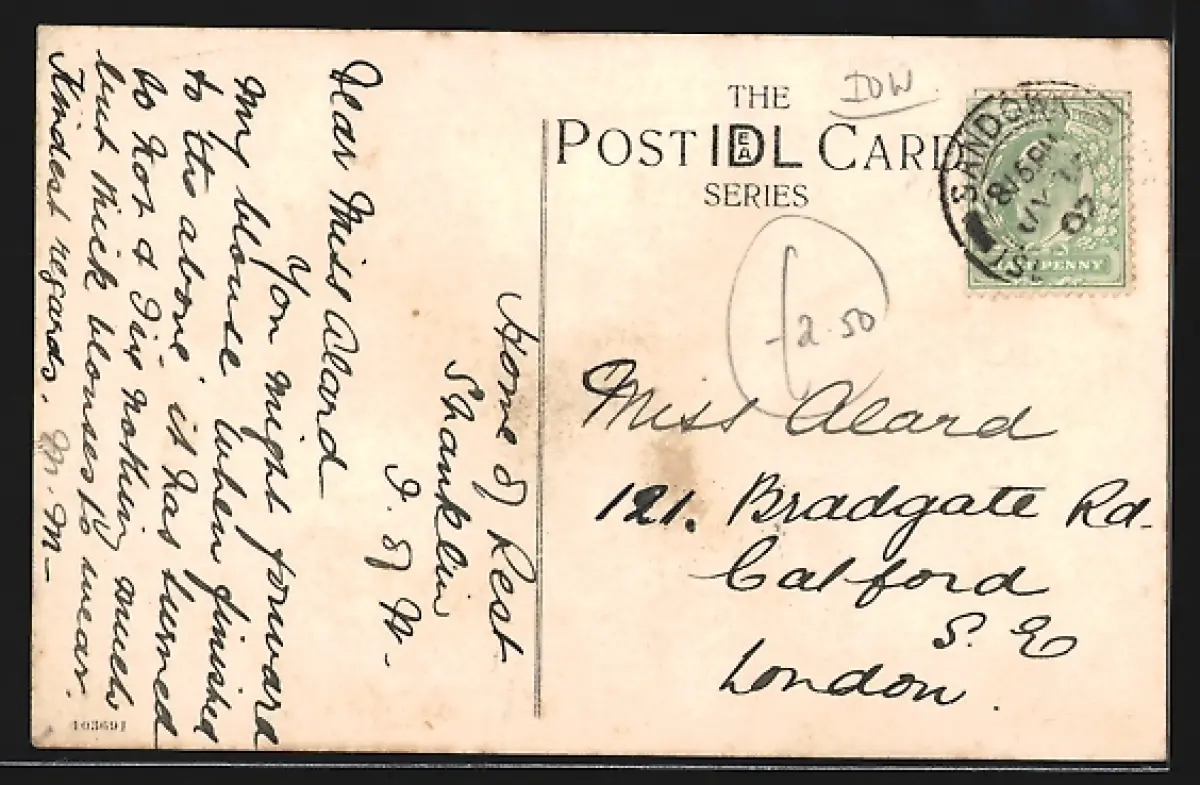 Home of Rest
Shanklin
I. of W.
Dear Miss Alard
You might forward
my blouse when finished
to the above. it has turned
so hot & I've nothing much
but thick blouses to wear.
Kindest regards. M. M—
103691
THE
POST IDEAL CARD
SERIES
IOW
£2.50
SANDOWN
8 15 PM
07
HALF PENNY
Miss Alard
121. Bradgate Rd.
Catford
S. E
London.